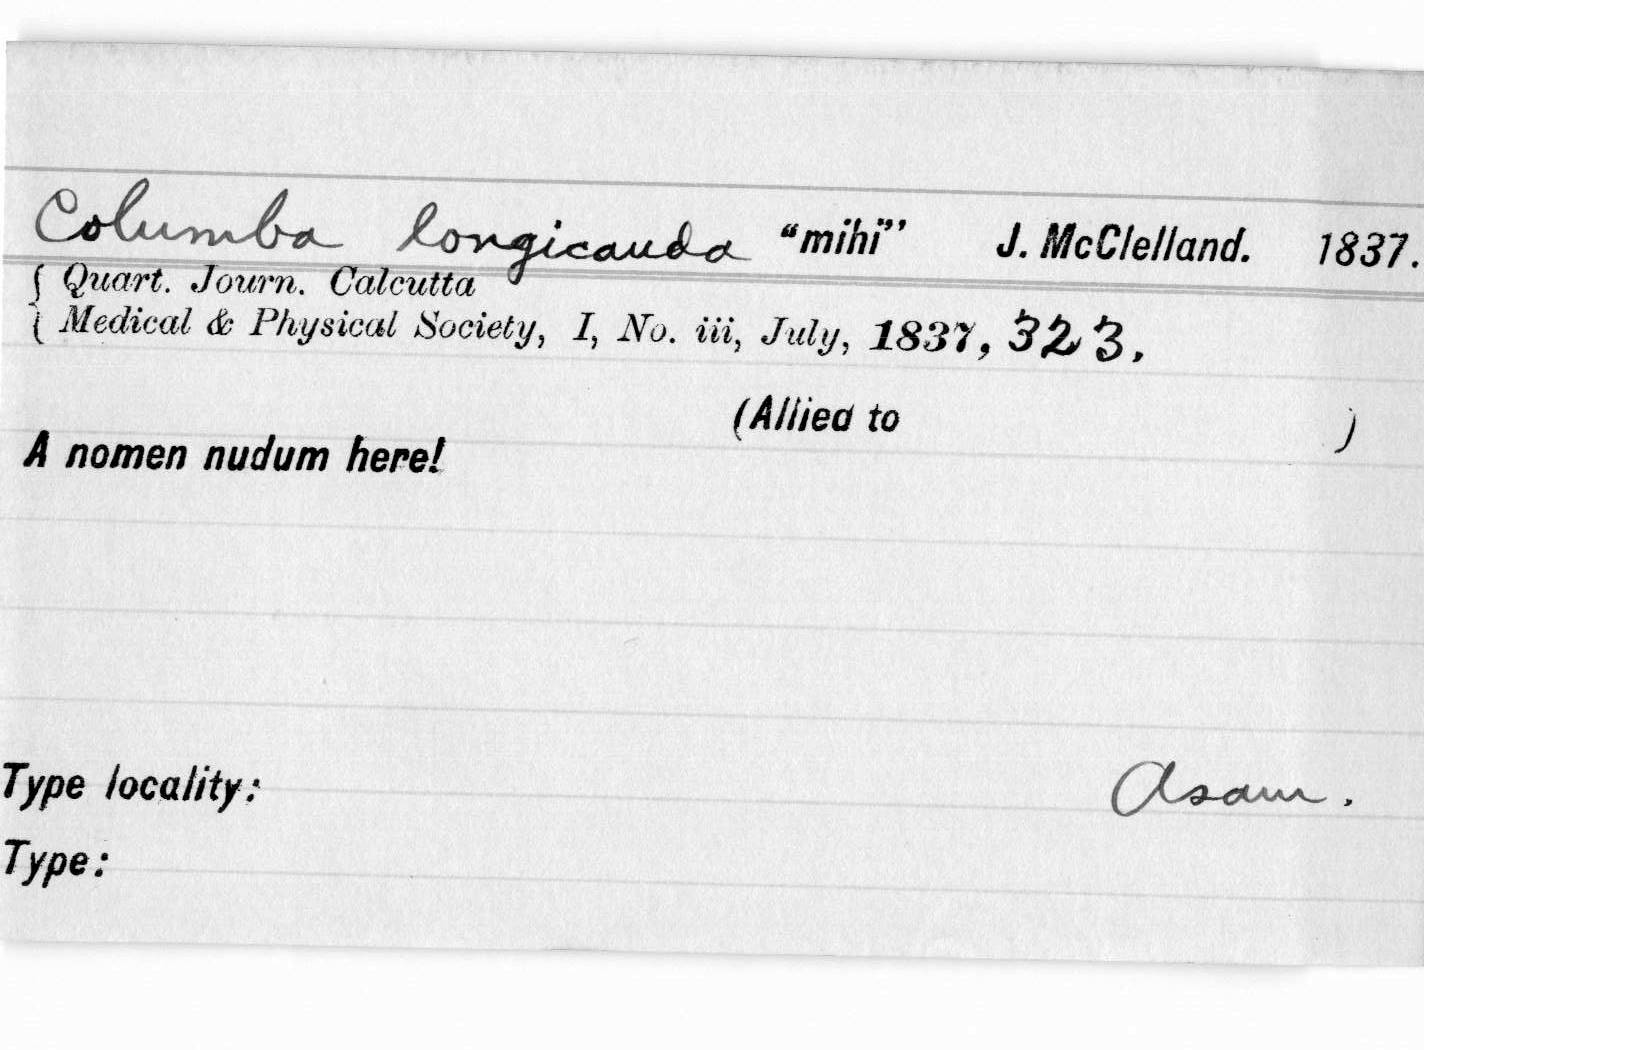 Columba longicauda “mihi” J. McClelland. 1837.
{ Quart. Journ. Calcutta
{ Medical & Physical Society, I, No. iii, July, 1837, 323.
(Allied to )
A nomen nudum here!
Type locality: Asam.
Type: